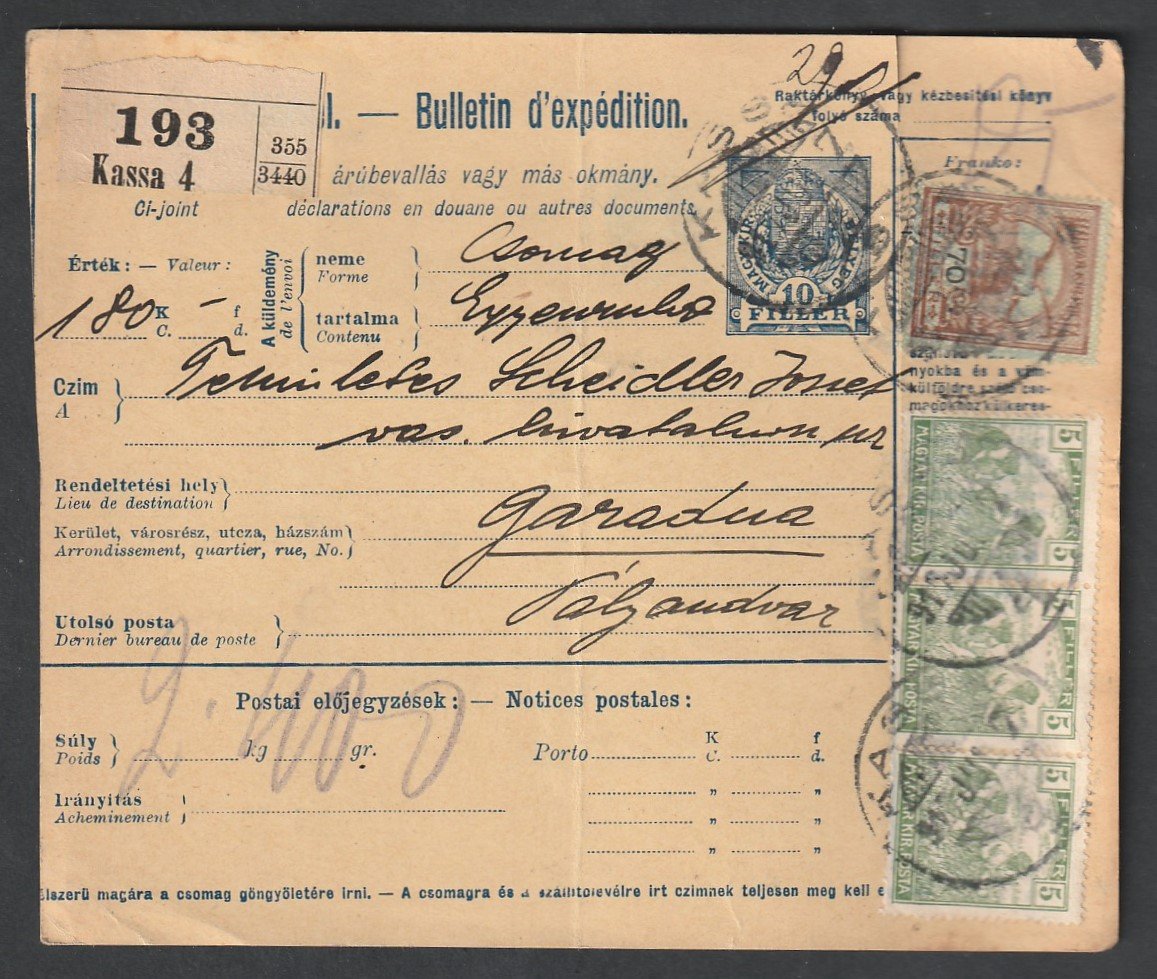 193
Kassa 4
355
3440
l. — Bulletin d'expédition.
árúbevallás vagy más okmány.
Ci-joint déclarations en douane ou autres documents
Raktárkönyv vagy kézbesítési könyv
folyó száma
Franko:
Érték: — Valeur:
180 K — f
C. d.
A küldemény
de l'envoi
neme
Forme
Csomag
tartalma
Contenu
10
FILLÉR
70
Czim
A
Scheidler József
vas. hivatalnok úr
nyokba és a vám-
külföldre szóló cso-
magokhoz külkeres-
Rendeltetési hely
Lieu de destination
Garadna
Kerület, városrész, utcza, házszám
Arrondissement, quartier, rue, No.
Pályaudvar
Utolsó posta
Dernier bureau de poste
Postai előjegyzések: — Notices postales:
Súly
Poids
kg gr.
2.400
Porto K f
C. d.
" "
" "
" "
Irányitás
Acheminement
élszerű magára a csomag göngyöletére irni. — A csomagra és a szállitólevélre irt czimnek teljesen meg kell e
5 FILLÉR 5
MAGYAR KIR. POSTA
5 FILLÉR 5
MAGYAR KIR. POSTA
5 FILLÉR 5
MAGYAR KIR. POSTA